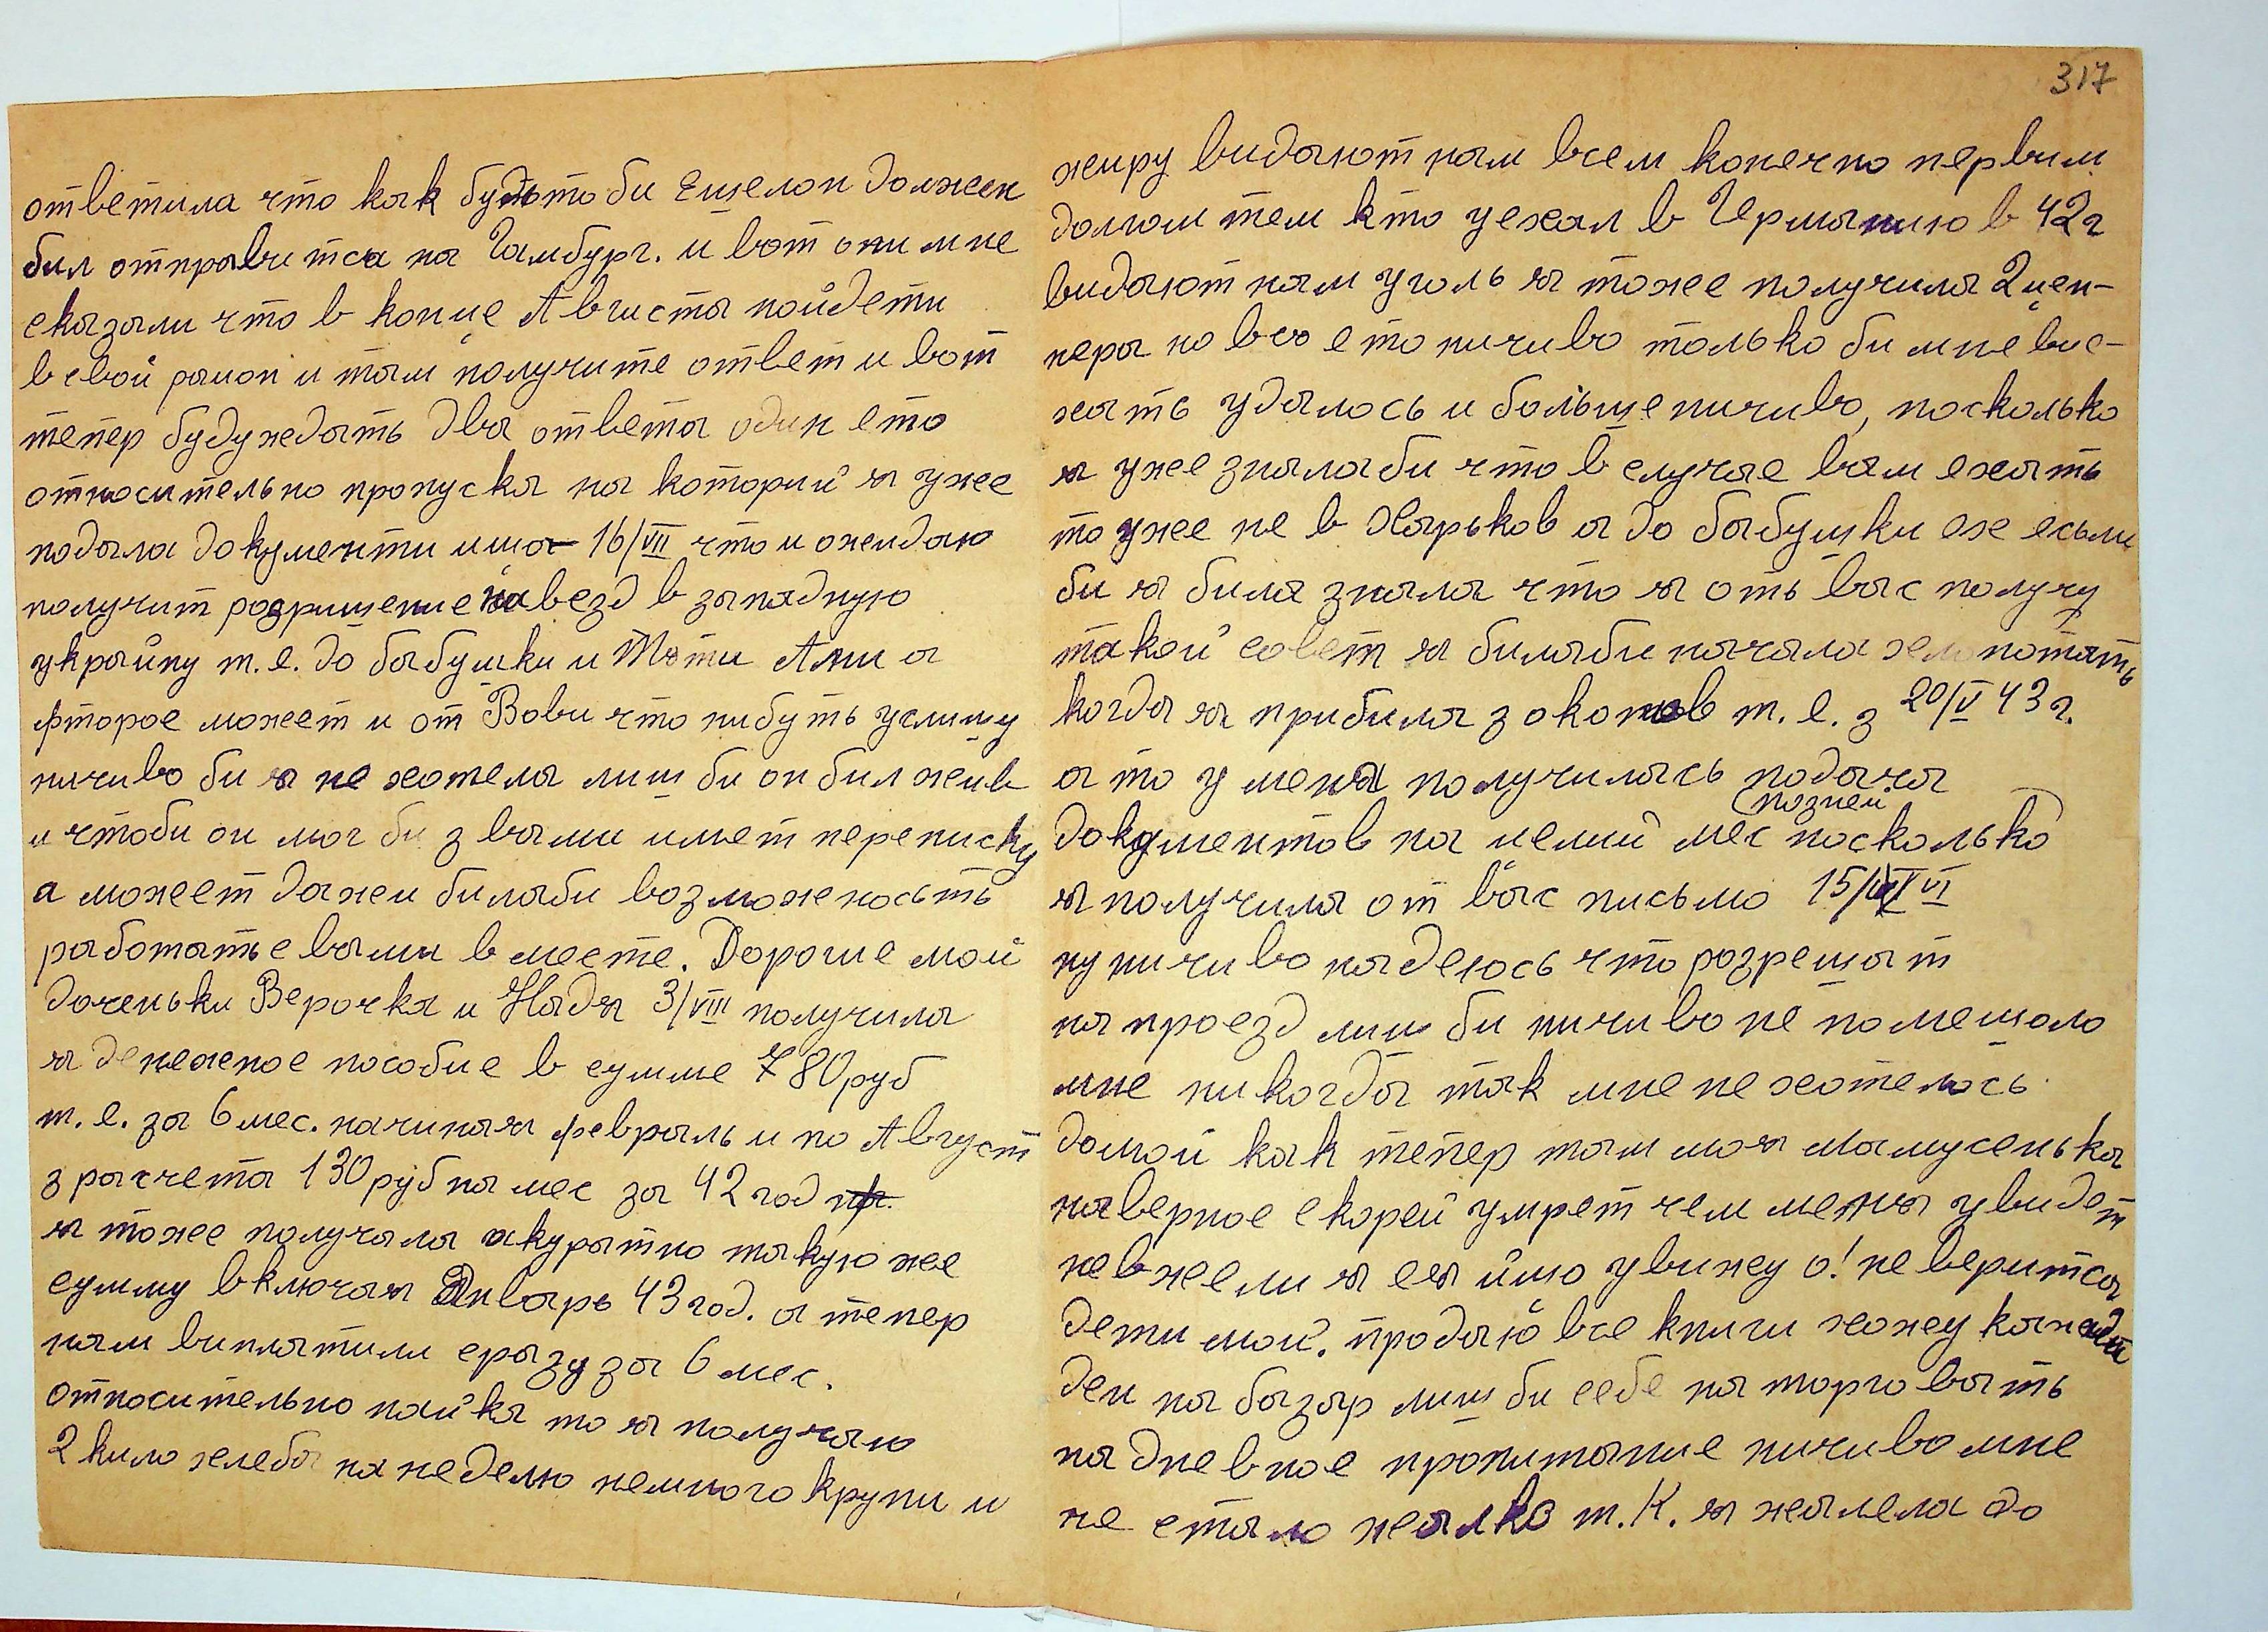 ответила что как будьто би Ешелон должен
бил отправитса на Гамбург. и вот они мне
сказали что в конце Августа пойдети
в свой район и там получите ответ и вот
тепер буду ждать два ответа один ето
относительно пропуска на который я уже
подала документи ишо 16/VII что и ожидаю
получит розришение на везд в западную
украйну т.е. до бабушки и Тьоти Ани а
фторое может и от Вови что нибуть услишу
ничиво би я не хотела лиш би он бил жив
и чтоби он мог би з вами имет переписку
а может даже и билаби возможеность
работать с вами вместе. Дорогие мои
доченьки Верочка и Надя 3/VIII получила
я денежное пособие в сумме 780 руб
т.е. за 6 мес. начиная февраль и по Август
з расчета 130 руб на мес за 42 год
я тоже получала акуратно такую же
сумму включая Январь 43 год. а тепер
нам виплатили сразу за 6 мес.
относительно пайка то я получаю
2 кило хлеба на неделю немного крупи и
317
жиру видают нам всем конечно первим
долгом тем кто уехал в Германию в 42 г
видают нам уголь я тоже получила 2 цен-
нера но всьо ето ничиво только би мне вие-
хать удалось и больше ничиво, посколько
я уже зналаби что в случае вам ехать
то уже не в Харьков а до бабушки ох есьли
би я била знала что я оть вас получу
такой совет я билаби начала хлопотать
когда я прибила з окопов т.е. з 20/V 43 г.
а то у меня получилась подача
документов на целий мес посколько
(позней)
я получила от вас письмо 15/VI
ну ничиво надеюсь что розрешат
на проезд лиш би ничиво не помешало
мне никогда так мне не хотелось
домой как тепер там моя мамусенька
наверное скорей умрет чем меня увидет
невжели я ея ишо увижу о! не веритса
дети мои. продаю все книги хожу кажди
ден на базар лиш би себе наторговать
на дневное пропитание ничиво мне
не стало жалко т.К. я жалела до